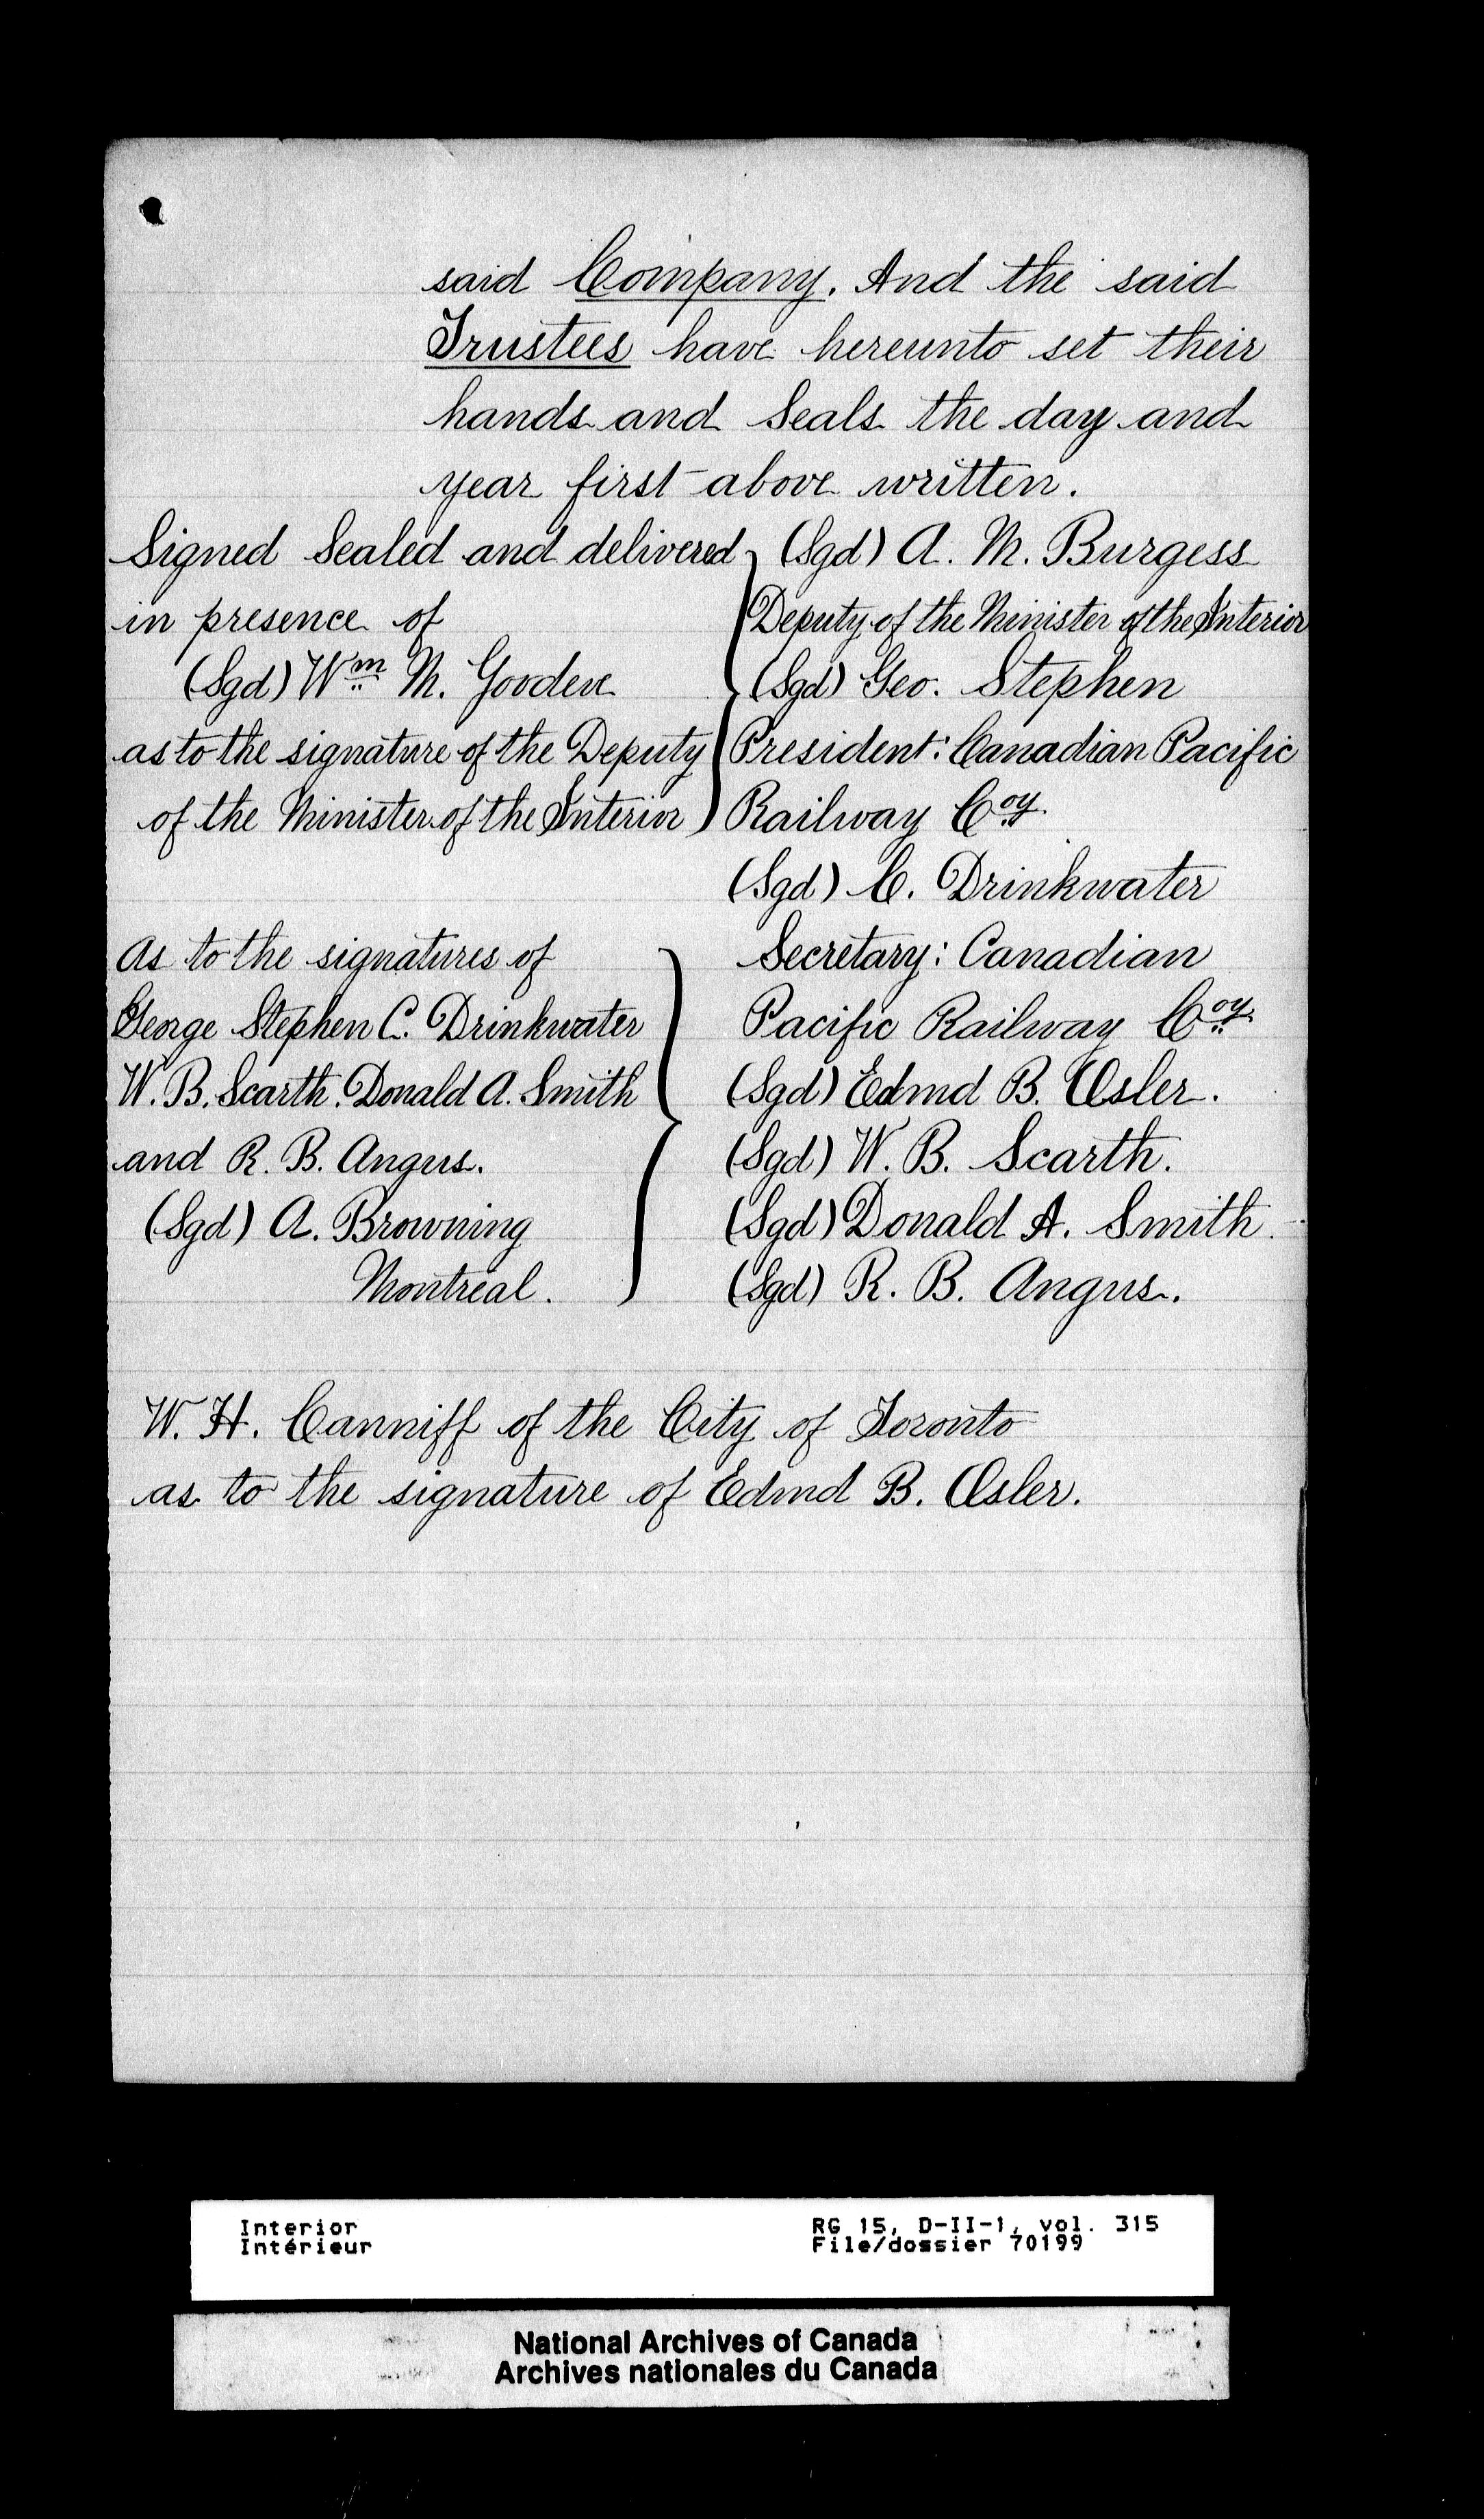 said Company. And the said
Trustees have hereunto set their
hands and Seals the day and
year first above written.
Signed Sealed and delivered
in presence of
(Sgd) Wm M. Gooden
as to the signature of the Deputy
of the Minister of the Interior
(Sgd) A. M. Burgess
Deputy of the Minister of the Interior
(Sgd) Geo. Stephen
President: Canadian Pacific
Railway Coy.
(Sgd) C. Drinkwater
Secretary: Canadian
Pacific Railway Coy.
As to the signatures of
George Stephen C. Drinkwater
W. B. Scarth. Donald A. Smith
and R. B. Angus.
(Sgd) A. Browning
Montreal.
(Sgd) Edmd B. Osler.
(Sgd) W. B. Scarth.
(Sgd) Donald A. Smith.
(Sgd) R. B. Angus.
W. H. Canniff of the City of Toronto
as to the signature of Edmd B. Osler.
Interior
Intérieur
RG 15, D-II-1, vol. 315
File/dossier 70199
National Archives of Canada
Archives nationales du Canada